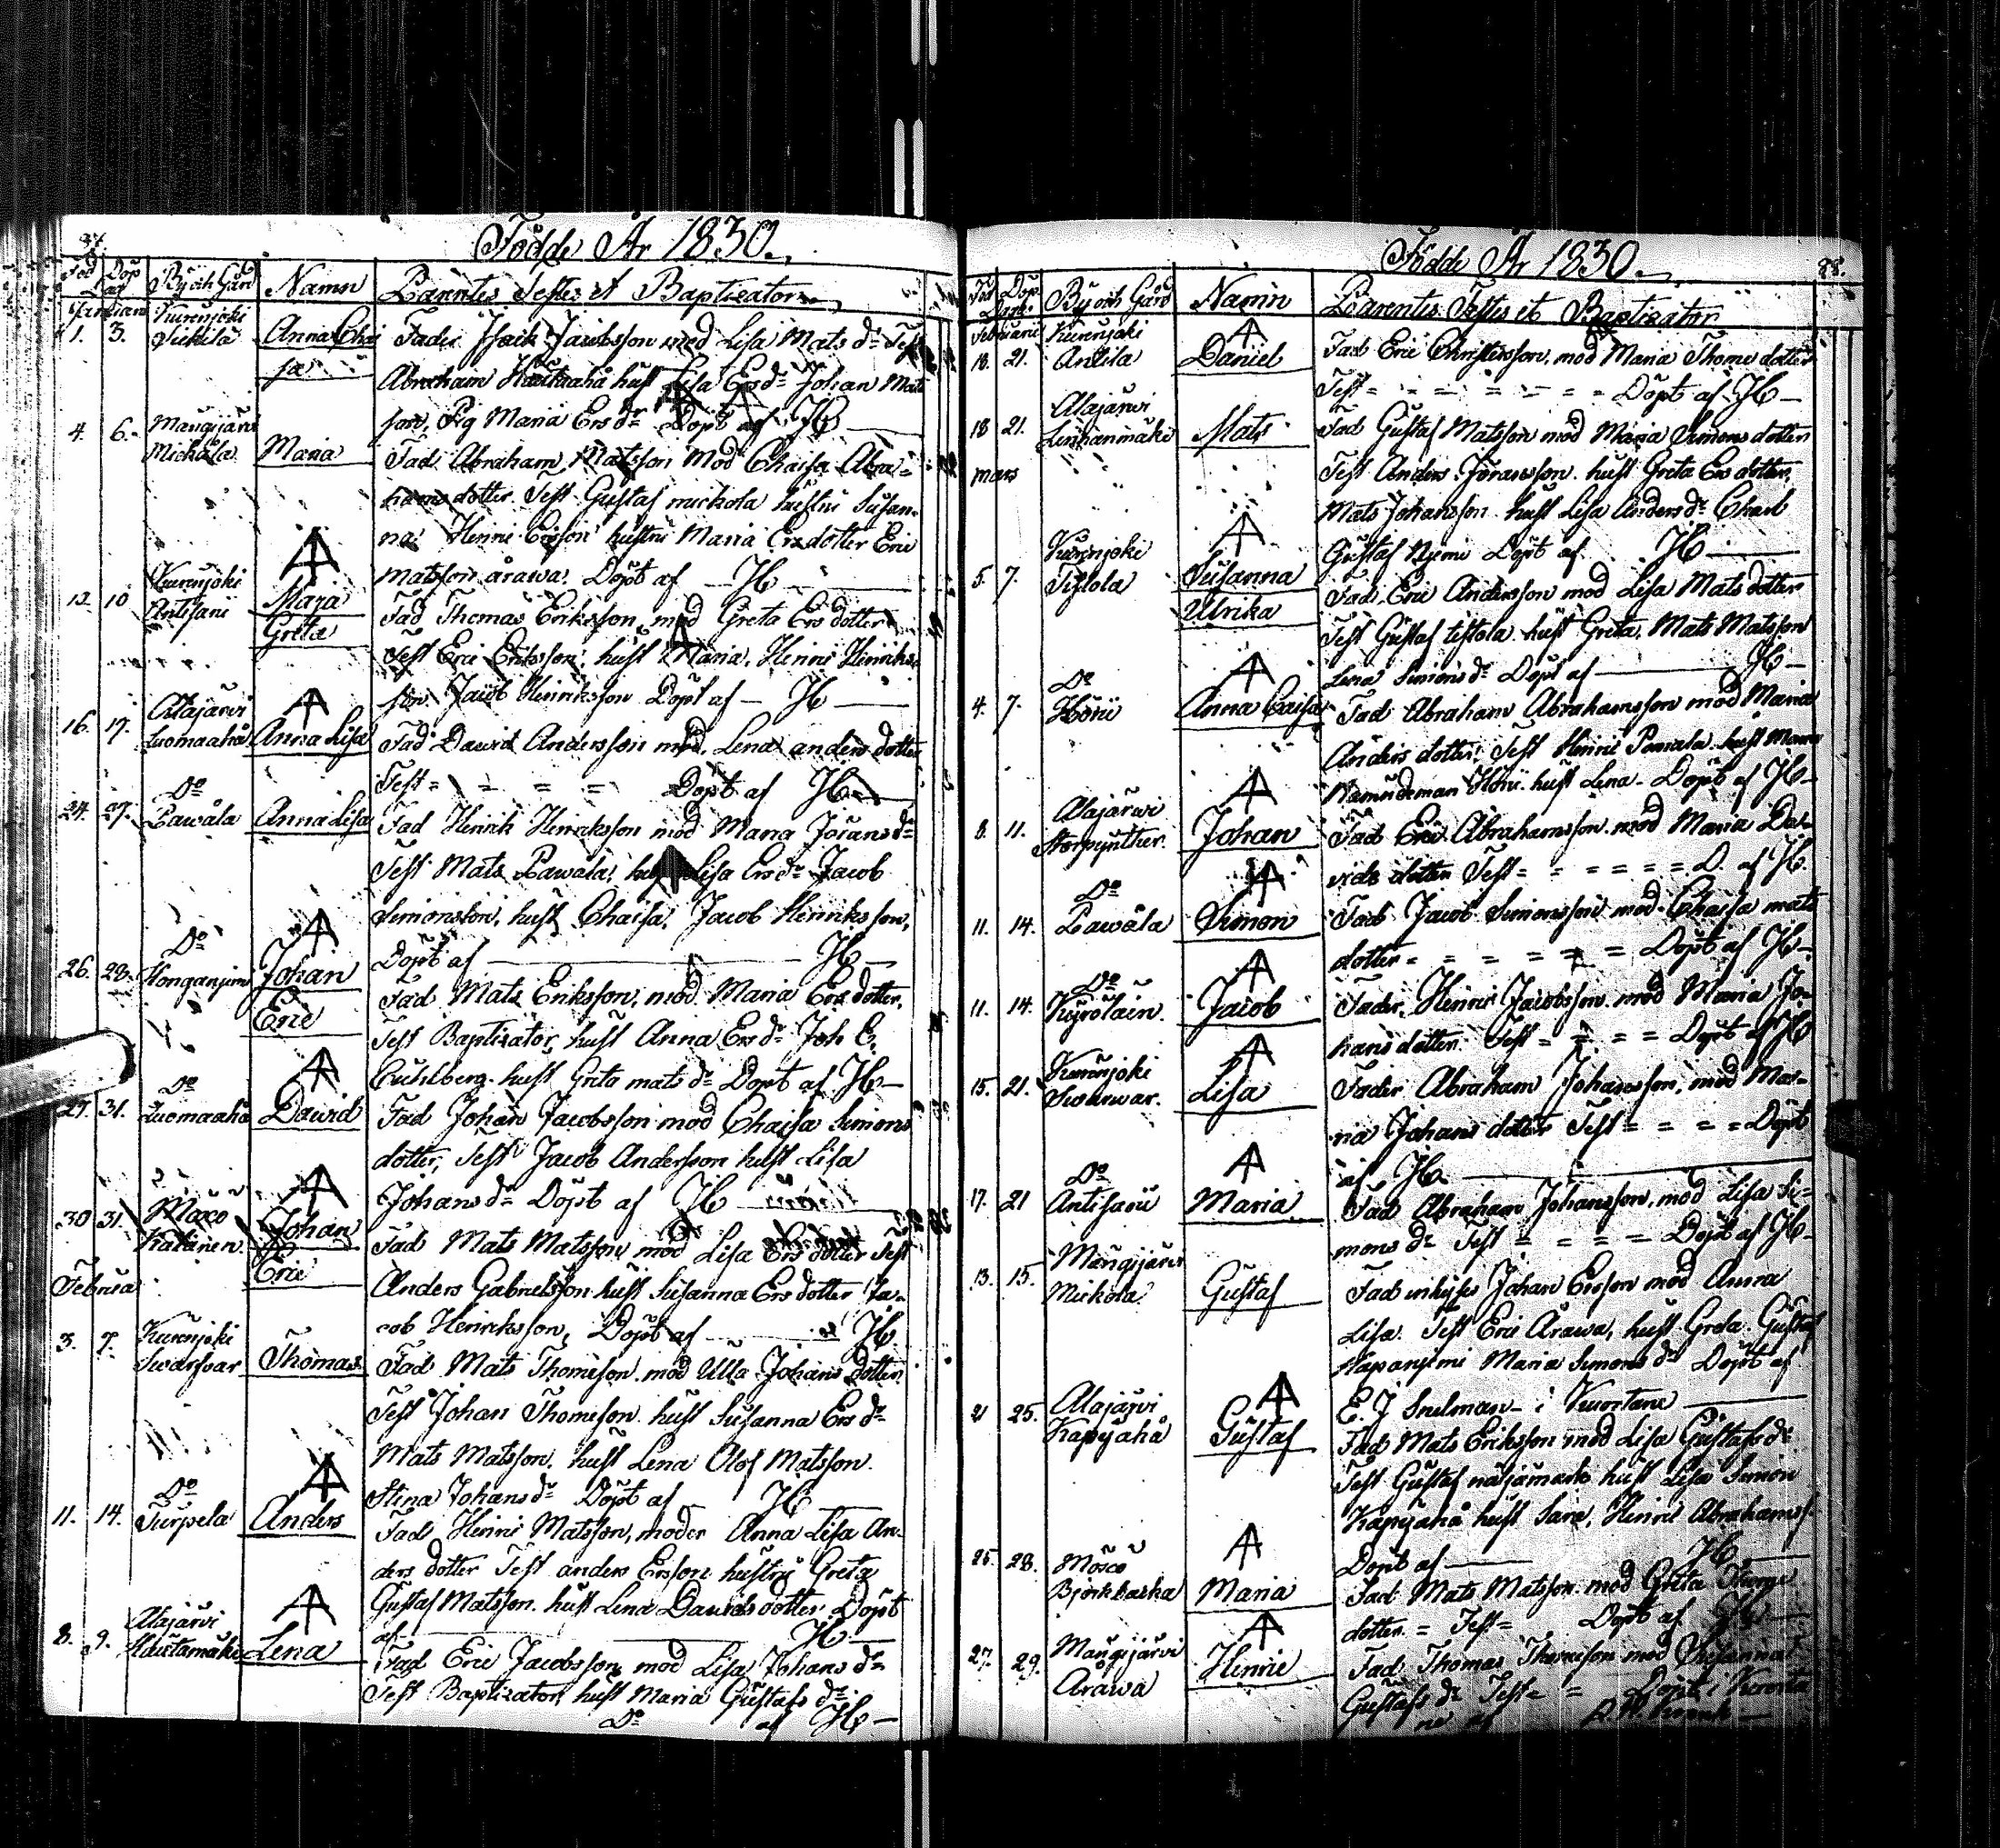 Födde År 1830.
Föd Dop Dag By och Gård Namn Parentes Testes et Baptisator
Januari Kurenjoki
1. 3. Anna Chai Fader Isack Jacobsson mod Lisa Mats dr Test
sa Abraham hust Lisa Ers dr Johan Mats
son, Pig Maria Ers dr Döpt af JH
4. 6. Mangijärvi
Michåla Maria Fad Abraham Matsson mod Chaisa Abra=
hams dotter Test Gustaf mickola hustru Susan-
na Henric Ersson hustru Maria Ersdotter Eric
Matsson årawa. Döpt af JH
12. 10 Kurenjoki
Antsani Maja Fad Thomas Eriksson mod Greta Ers dotter
Greta Test Eric Eriksson, hust Maria, Henric Henriks-
son Jacob Henriksson Döpt af JH
16. 17. Alajärvi
Luomaaho Anna Lisa Fad David Andersson mod. Lena anders dotter
Test = = = = Döpt af JH
24. 27. Do
Pawåla Anna Lisa Fad Henrik Henriksson mod Maria Jörans dr
Test Mats Pawåla, hust Lisa Ers dr Jacob
Simonsson, hust Chaisa, Jacob Henriksson,
Döpt af JH
26. 28. Do
Honganjemi Johan Fad Mats Eriksson, mod Maria Ers dotter,
Eric Test Baptisator, hust Anna Ers dr Joh E.
hust Greta mats dr Döpt af JH
27. 31. Do
Luomaaho David Fad Johan Jacobsson mod Chaisa Simons
dotter, Test Jacob Andersson hust Lisa
Johans dr Döpt af JH
30 31. Möxö
Katanen Johan Fad Mats Matsson mod Lisa Ers dotter Test
Eric Anders Gabrielsson hust Susanna Ers dotter Ja-
cob Henriksson, Döpt af JH
Februa
3. 7. Kurenjoki
Swarfvar Thomas Fad Mats Thomeson mod Ulla Johans dotter
Test Johan Thomeson hust Susanna Ers dr
Mats Matsson, hust Lena Olof Matsson
Stina Johans dr Döpt af JH
11. 14. Do
Turpela Anders Fad Henric Matsson, moder Anna Lisa An-
ders dotter Test anders Ersson hustru Greta
Gustaf Matsson hust Lena Davids dotter Döpt
af JH
8. 9. Alajärvi
Hautamäki Lena Fad Eric Jacobsson mod Lisa Johans dr
Test Baptisator, hust Maria Gustafs dr
Do af JH
Födde År 1830. 88.
Föd Döp By och Gård Namn Parentes Testes et Baptisator
Februarii Kurenjoki
18. 21. Antila Daniel Fad Eric Christersson, mod Maria Thome dotter
Test = = = = Döpt af JH
18 21. Alajärvi
Linnanmäki Mats Fad Gustaf Matsson mod Maria Simons dotter
mars Test Anders Jöransson hust Greta Ers dotter,
Mats Johansson hust Lisa Anders dr Charl
Gustaf Nyemi Döpt af JH
5. 7. Kurenjoki
Tistola Susanna Fad Eric Andersson mod Lisa Mats dotter
Ulrika Test Gustaf tistola hust Greta, Mats Matsson
Lena Simons dr Döpt af JH
4. 7. Do
Anna Caisa Fad Abraham Abrahamsson mod Maria
Anders dotter, Test Henric Pamala hust Maria
Nämndeman hust Lena Döpt af JH
8. 11. Alajärvi
Johan Fad Eric Abrahamsson mod Maria Da-
vids dotter Test = = = = D. af JH.
11. 14. Do
Pawåla Simon Fad Jacob Simonsson mod Chaisa mats
dotter = = = = Döpt af JH
11. 14. Do
Kyrolain Jacob Fader Henric Jacobsson mod Maria Jo-
hans dotter Test = = = Döpt af JH
15. 21. Kurenjoki
Swarwar. Lisa Fader Abraham Johansson, mod Ma-
ria Johans dotter Test = = = = Döpt
af JH
17. 21 Do
Antisani Maria Fad Abraham Johansson, mod Lisa Si=
mons dr Test = = = Döpt af JH
13. 15. Mangijärvi
Mickola Gustaf Fad inhyses Johan Ersson mod Anna
Lisa Test Eric Årawa, hust Greta Gustaf
Hapanjemi Maria Simons dr Döpt af
E. J Snelman i Kuortane
21 25. Alajärvi
Kapyaho Gustaf Fad Mats Eriksson mod Lisa Gustafs dr
Test Gustaf hust Lisa Simon
Kapyaho hust Sara, Henric Abrahamss.
Döpt af JH
25. 28. Möxö
Björkbacka Maria Fad Mats Matsson mod Greta Thome
dotter = Test = Döpt af JH
27. 29. Mangijärvi
Årawa Henric Fad Thomas Thomeson mod Susanna
Gustafs dr Test = = Döpt i Kuorta
ne af